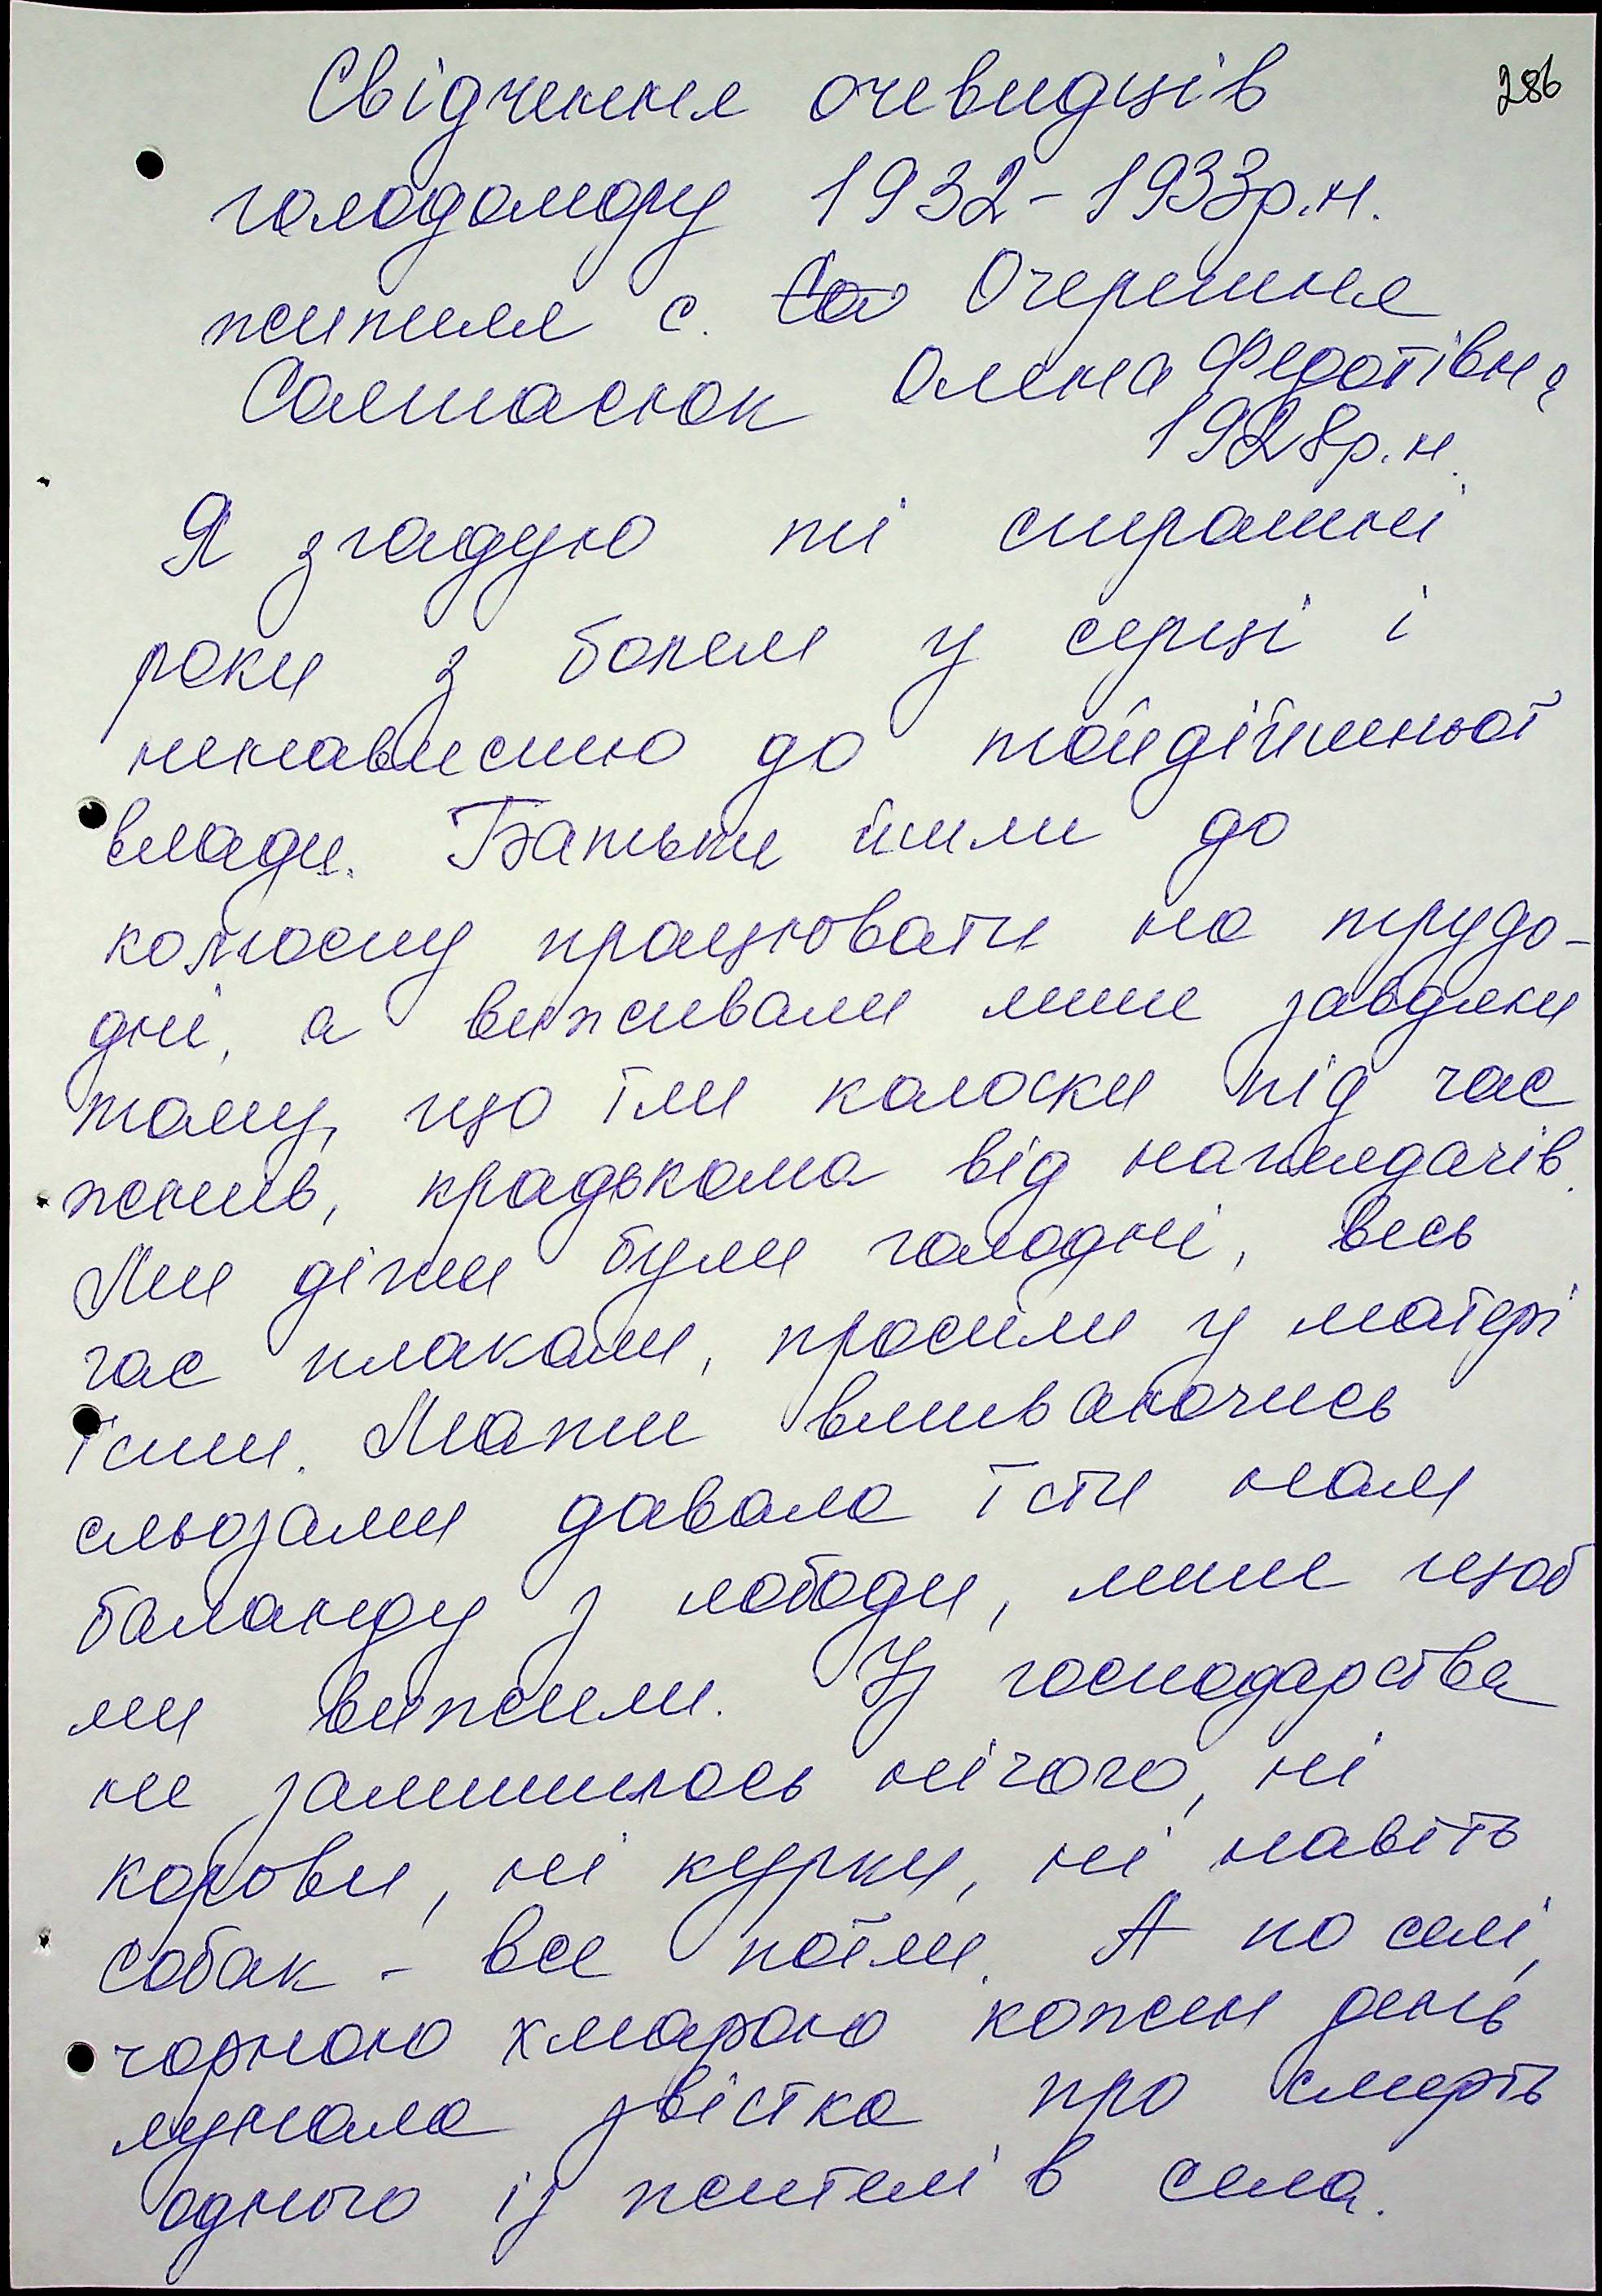 286
Свідчення очевидців
голодомору 1932-1933р.н.
жителя с. Очеретня
Олена Федотівна
1928р.н.
Я згадую ті страшні
роки з болем у серці і
ненавистю до тодійшньої
влади. Батьки йшли до
колгоспу працювати на трудо-
дні, а виживали лише завдяки
тому, що їли колоски під час
жнив, крадькома від наглядачів.
Ми діти були голодні, весь
час плакали, просили у матері
їсти. Мати вмиваючись
сльозами давала їсти нам
баланду з лободи, лише щоб
ми вижили. Із господарства
не залишилось нічого, ні
корови, ні курки, ні навіть
собак - все поїли. А по селі,
чорною хмарою кожен день
лунала звістка про смерть
одного із жителів села.